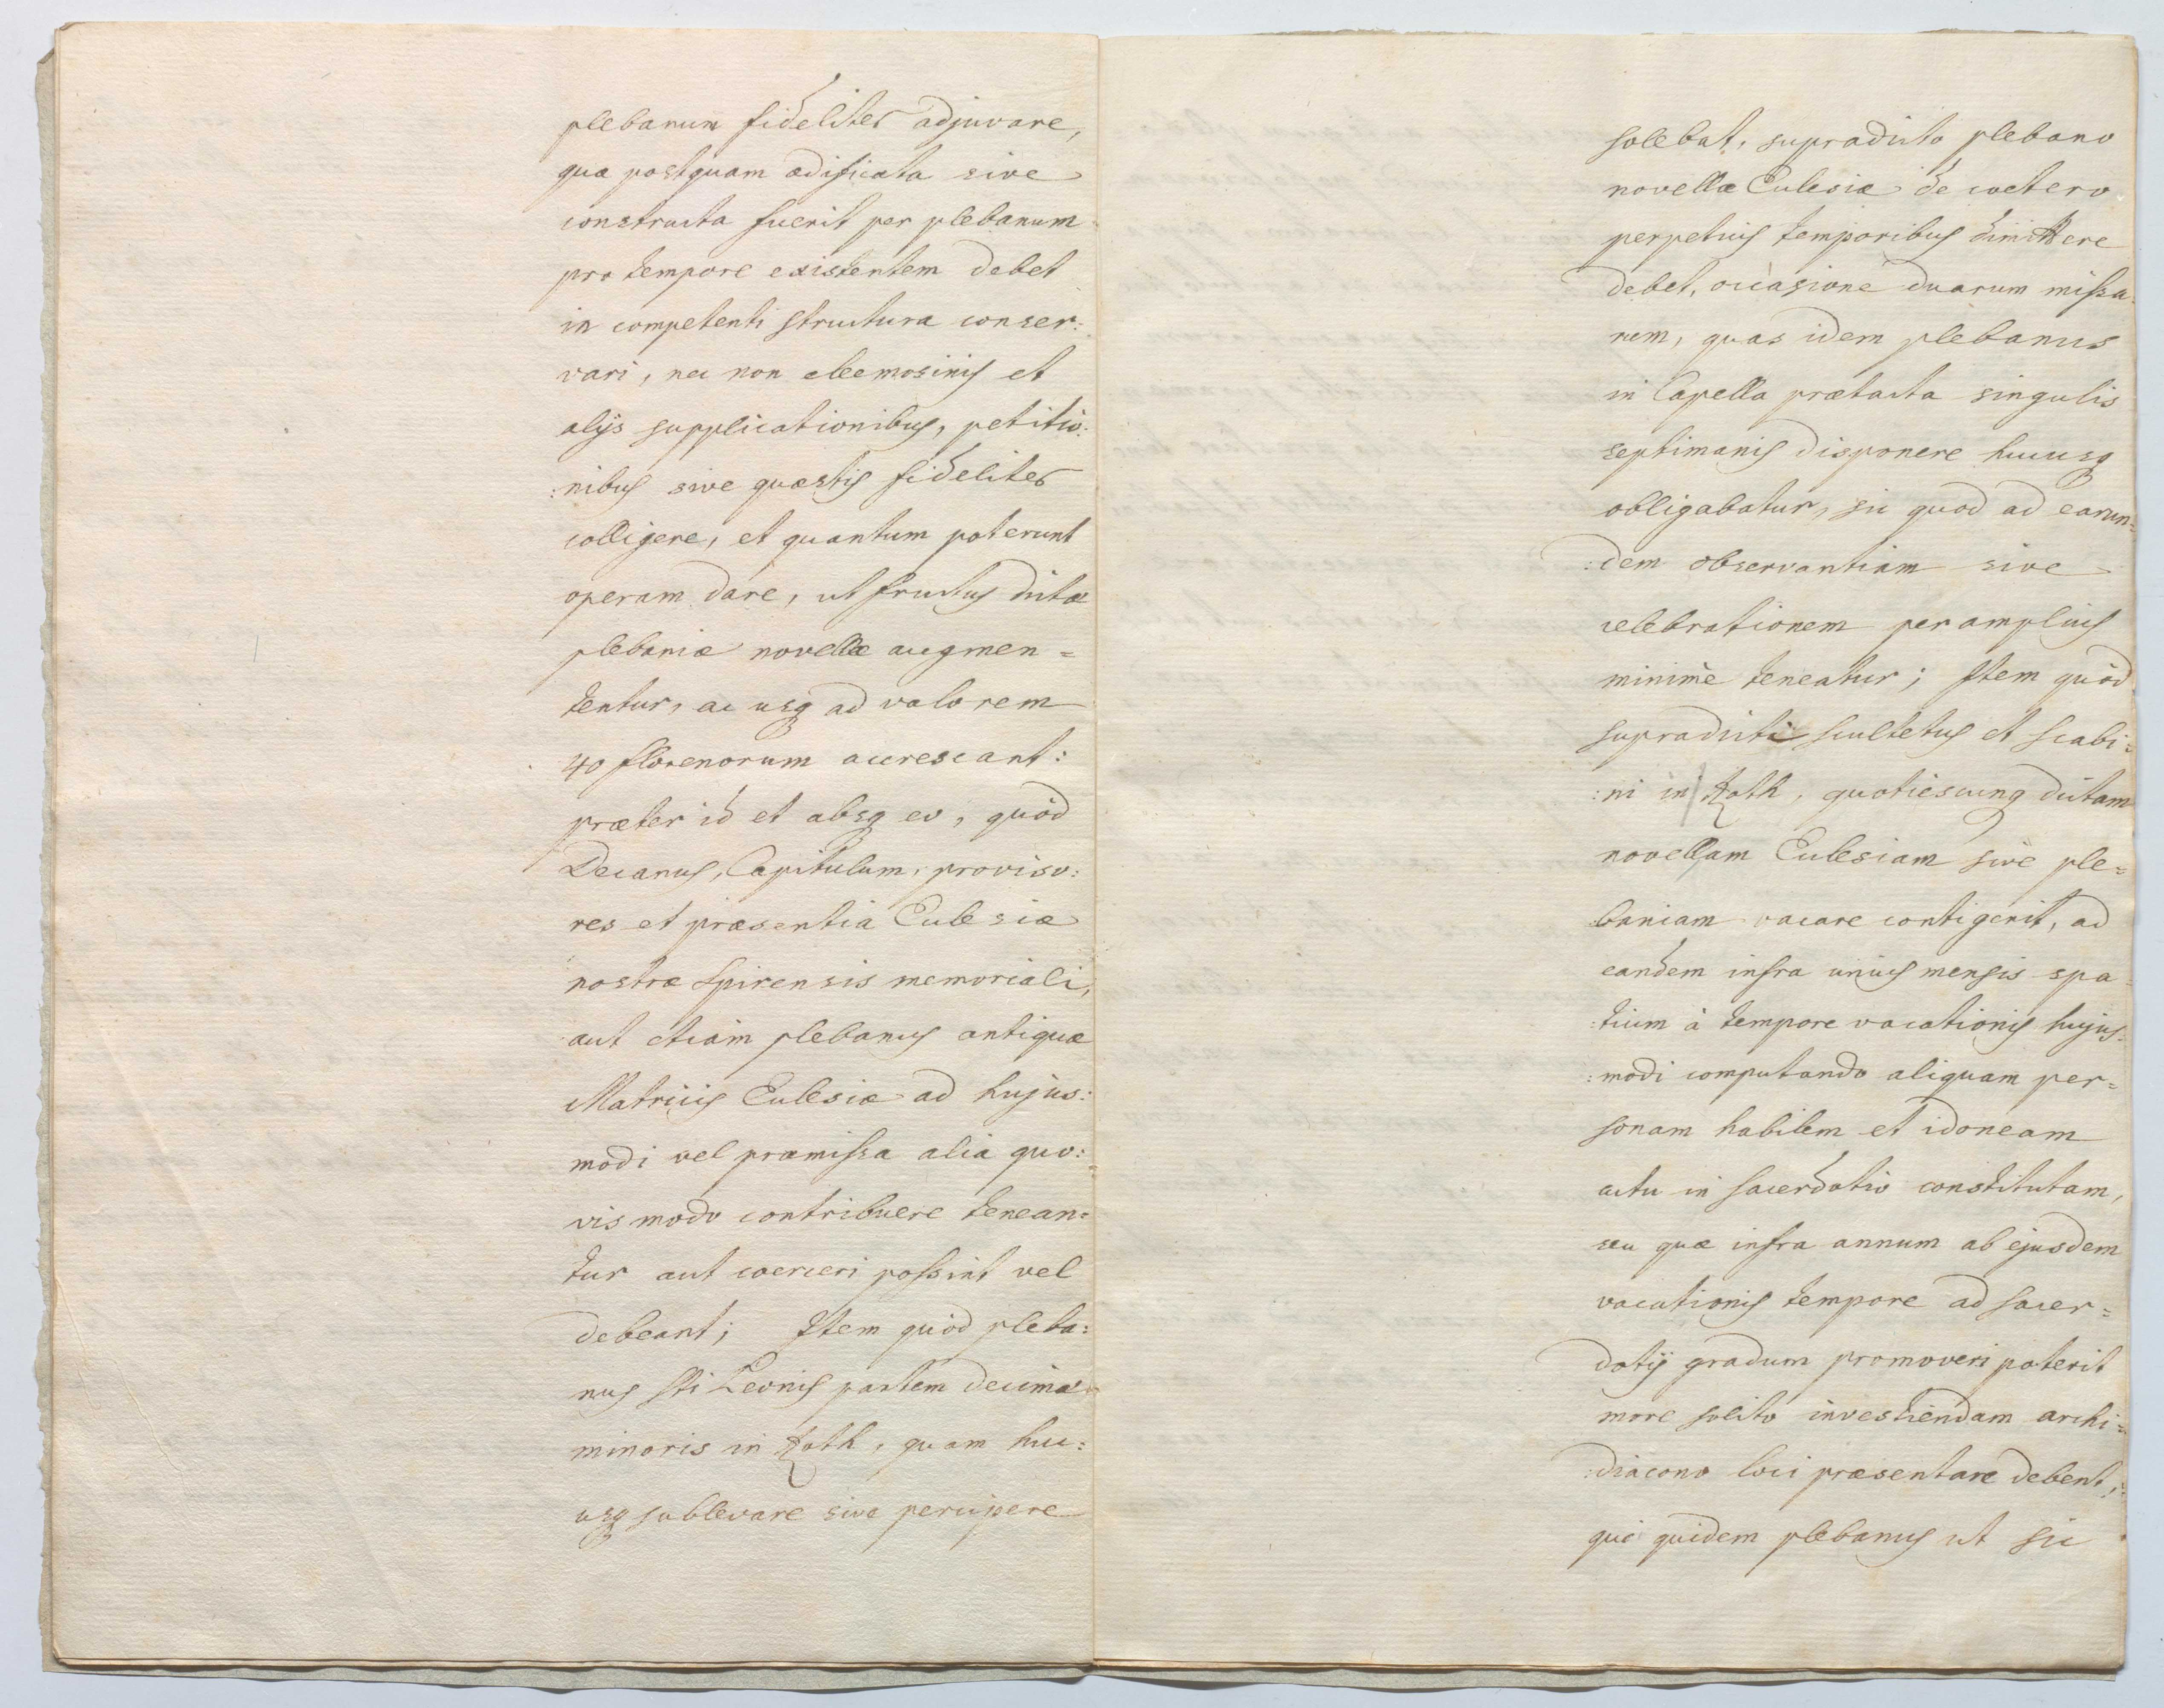 plebanum fideliter adjuvare,
quæ postquam ædificata sive
constructa fuerit per plebanum
pro tempore existentem debet
in competenti structura conser:
vari, nec non elemosinis et
alijs supplicationibus, petitio:
:nibus sive quæstis fideliter
colligere, et quantum poterunt
operam dare, ut fructus dictæ
plebaniæ novellæ augmen=
tentur, ac usq ad valorem
40 florenorum accrescant:
præter id et absq eo, quòd
Decanus, Capitulum, proviso:
res et præsentia Ecclesiæ
nostræ Spirensis memoriali,
aut etiam plebanus antiquæ
Matricis Ecclesiæ ad hujus:
modi vel præmissa alia quo:
vis modo contribuere tenean=
tur aut coerceri possint vel
debeant; Item quòd pleba:
nus Sti Leonis partem decimæ
minoris in Roth, quam huc:
usq sublevare sive percipere
solebat, supradicto plebano
novellæ Ecclesiæ de coetero
perpetuis temporibus dimittere
debet, occasione duarum missa:
rum, quas idem plebanus
in Capella prætacta singulis
septimanis disponere hucusq
obligabatur, sic quod ad earun=
:dem observantiam sive
celebrationem per amplius
minimè teneatur; Item quòd
supradicti scultetus et scabi:
:ni in Roth, quotiescunq dictam
novellam Ecclesiam sive ple=
baniam vacare contigerit, ad
eandem infra unius mensis spa=
:tium à tempore vacationis hujus:
:modi computando aliquam per=
sonam habilem et idoneam
actu in sacerdotio constitutam,
seu quæ infra annum ab ejusdem
vacationis tempore ad sacer=
dotij gradum promoveri poterit
more solito investiendam archi=
:diacono loci præsentare debent,
qui quidem plebanus ut sic